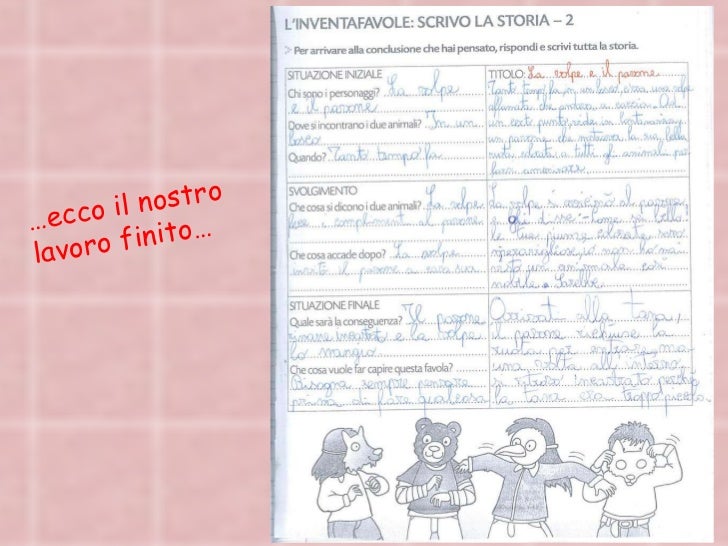 …ecco il nostro
lavoro finito…
L'INVENTAFAVOLE: SCRIVO LA STORIA – 2
> Per arrivare alla conclusione che hai pensato, rispondi e scrivi tutta la storia.
SITUAZIONE INIZIALE
Chi sono i personaggi? La volpe
e il pavone
Dove si incontrano i due animali? In un
bosco
Quando? Tanto tempo fa
TITOLO: La volpe e il pavone
Tanto tempo fa in un bosco, c'era una volpe
affamata che andava a caccia. Ad
un certo punto, vide in lontananza
un pavone che mostrava la sua bella
ruota colorata a tutti gli animali per
farsi ammirare.
SVOLGIMENTO
Che cosa si dicono i due animali? La volpe
fece i complimenti al pavone
Che cosa accade dopo? La volpe
invitò il pavone a casa sua
La volpe si avvicinò al pavone
e gli disse: -Come sei bello!
le tue piume colorate sono
meravigliose, io non ho mai
visto un animale così
nobile. Sarebbe
SITUAZIONE FINALE
Quale sarà la conseguenza? Il pavone
rimane incastrato e la volpe
lo mangiò
Che cosa vuole far capire questa favola?
Bisogna sempre pensare
prima di fare qualcosa
Arrivati alla tana,
il pavone richiuse la
ruota per entrare, ma
una volta all'interno
si ritrovò incastrato perché
la tana era troppo piccola